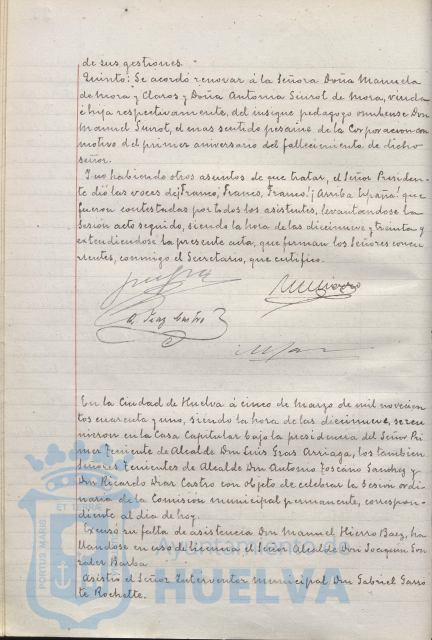 de sus gestiones.
Quinto: Se acordó renovar á la Señora Doña Manuela
de Mora y Claros y Doña Antonia Siurot de Mora, viuda
é hija respectivamente, del insigne pedagogo onubense Don
Manuel Siurot, el mas sentido pesame de la Corporacion con
motivo del primer aniversario del fallecimiento de dicho
señor.
Y no habiendo otros asuntos de que tratar, el Señor Presiden-
te dió las voces de ¡Franco, Franco, Franco! ¡Arriba España! que
fueron contestadas por todos los asistentes, levantandose la
Sesion acto seguido, siendo la hora de las diecinueve y treinta y
extendiendose la presente acta, que firman los Señores concu-
rrentes, conmigo el Secretario, que certifico.
R. Diaz Castro
En la Ciudad de Huelva á cinco de marzo de mil novecien
tos cuarenta y uno, siendo la hora de las diecinueve, se reu
nieron en la Casa Capitular bajo la presidencia del Señor Pri
mer Teniente de Alcalde Don Luis Gras Arriaga, los tambien
Señores Tenientes de Alcalde Don Antonio Toscano Sanchez y
Don Ricardo Diaz Castro con objeto de celebrar la Sesion ordi
naria de la Comision municipal permanente, correspon-
diente al dia de hoy.
Excusó su falta de asistencia Don Manuel Hierro Baez, ha
llandose en uso de licencia el Señor Alcalde Don Joaquin Gon
zalez Barba.
Asistió el Señor Interventor municipal Don Gabriel Garro
te Rochette.
PORTUS MARIS ET TERRAE
Ayuntamiento de
HUELVA